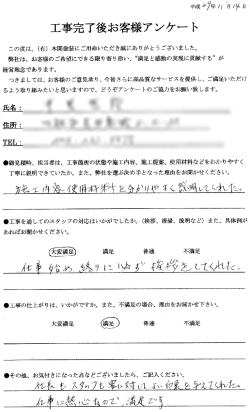 平成29年11月14日
工事完了後お客様アンケート
この度は、(有)本間塗装にご用命いただき誠にありがとうございました。
弊社は、お客様のご希望にできる限り寄り添い、"満足と感動の実現に貢献する"が
経営理念であります。
つきましては、お客様のご意見承り、今後さらに高品質なサービスを提供し、ご満足いただけ
るよう取り組みたいと思いますので、どうぞアンケートのご協力をお願い致します。
氏名：
住所：
TEL：
●御見積時、担当者は、工事箇所の状態や施工内容、施工提案、使用材料などをわかりやすく
丁寧に説明できていたか。また、弊社を選ぶ決め手となった理由をお聞かせ下さい。
施工内容、使用材料を分かりやすく説明してくれた。
●工事を通してのスタッフの対応はいかがでしたか。(挨拶、清掃、説明など) また、具体例が
あればお聞かせください。
大変満足 満足 普通 不満足
仕事始め、終りに必ず挨拶をしてくれた。
●工事の仕上がりは、いかがですか。また、不満足の場合、理由をお聞かせ下さい。
大変満足 満足 普通 不満足
●その他、お気付きになった点などございましたら、ご記入ください。
社長もスタッフも客に対してよい印象を与えてくれた。
仕事に熱心なので、満足です